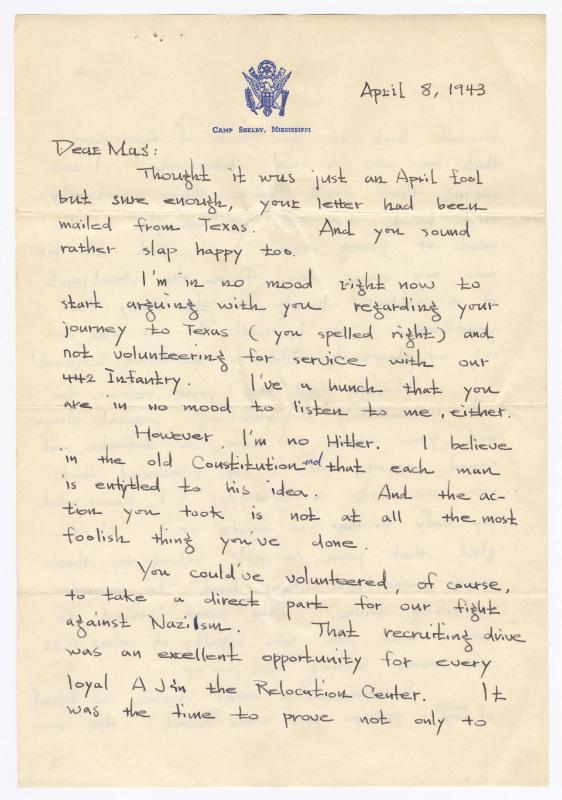 CAMP SHELBY, MISSISSIPPI
April 8, 1943
Dear Mas:
Thought it was just an April fool
but sure enough, your letter had been
mailed from Texas. And you sound
rather slap happy too.
I'm in no mood right now to
start arguing with you regarding your
journey to Texas (you spelled right) and
not volunteering for service with our
442 Infantry. I've a hunch that you
are in no mood to listen to me, either.
However, I'm no Hitler. I believe
in the old Constitution and that each man
is entitled to his idea. And the ac-
tion you took is not at all the most
foolish thing you've done.
You could've volunteered, of course,
to take a direct part for our fight
against Naziism. That recruiting drive
was an excellent opportunity for every
loyal AJ in the Relocation Center. It
was the time to prove not only to